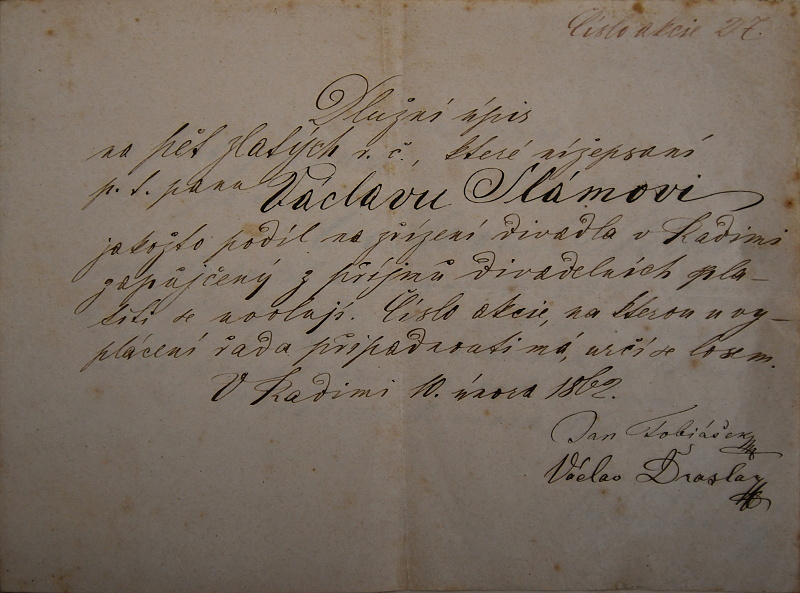 Číslo akcie 27.
Dlužní úpis
na pět zlatých r. č., které nížepsaní
p. t. panu Václavu Slámovi
jakožto podíl na zřízení divadla v Radimi
zapůjčený z příjmů divadelních pla-
titi se uvolují. Číslo akcie, na kterou u vy-
plácení řada připadnouti má, určí se losem.
V Radimi 10. února 1862.
Jan Tobiášek
Václav